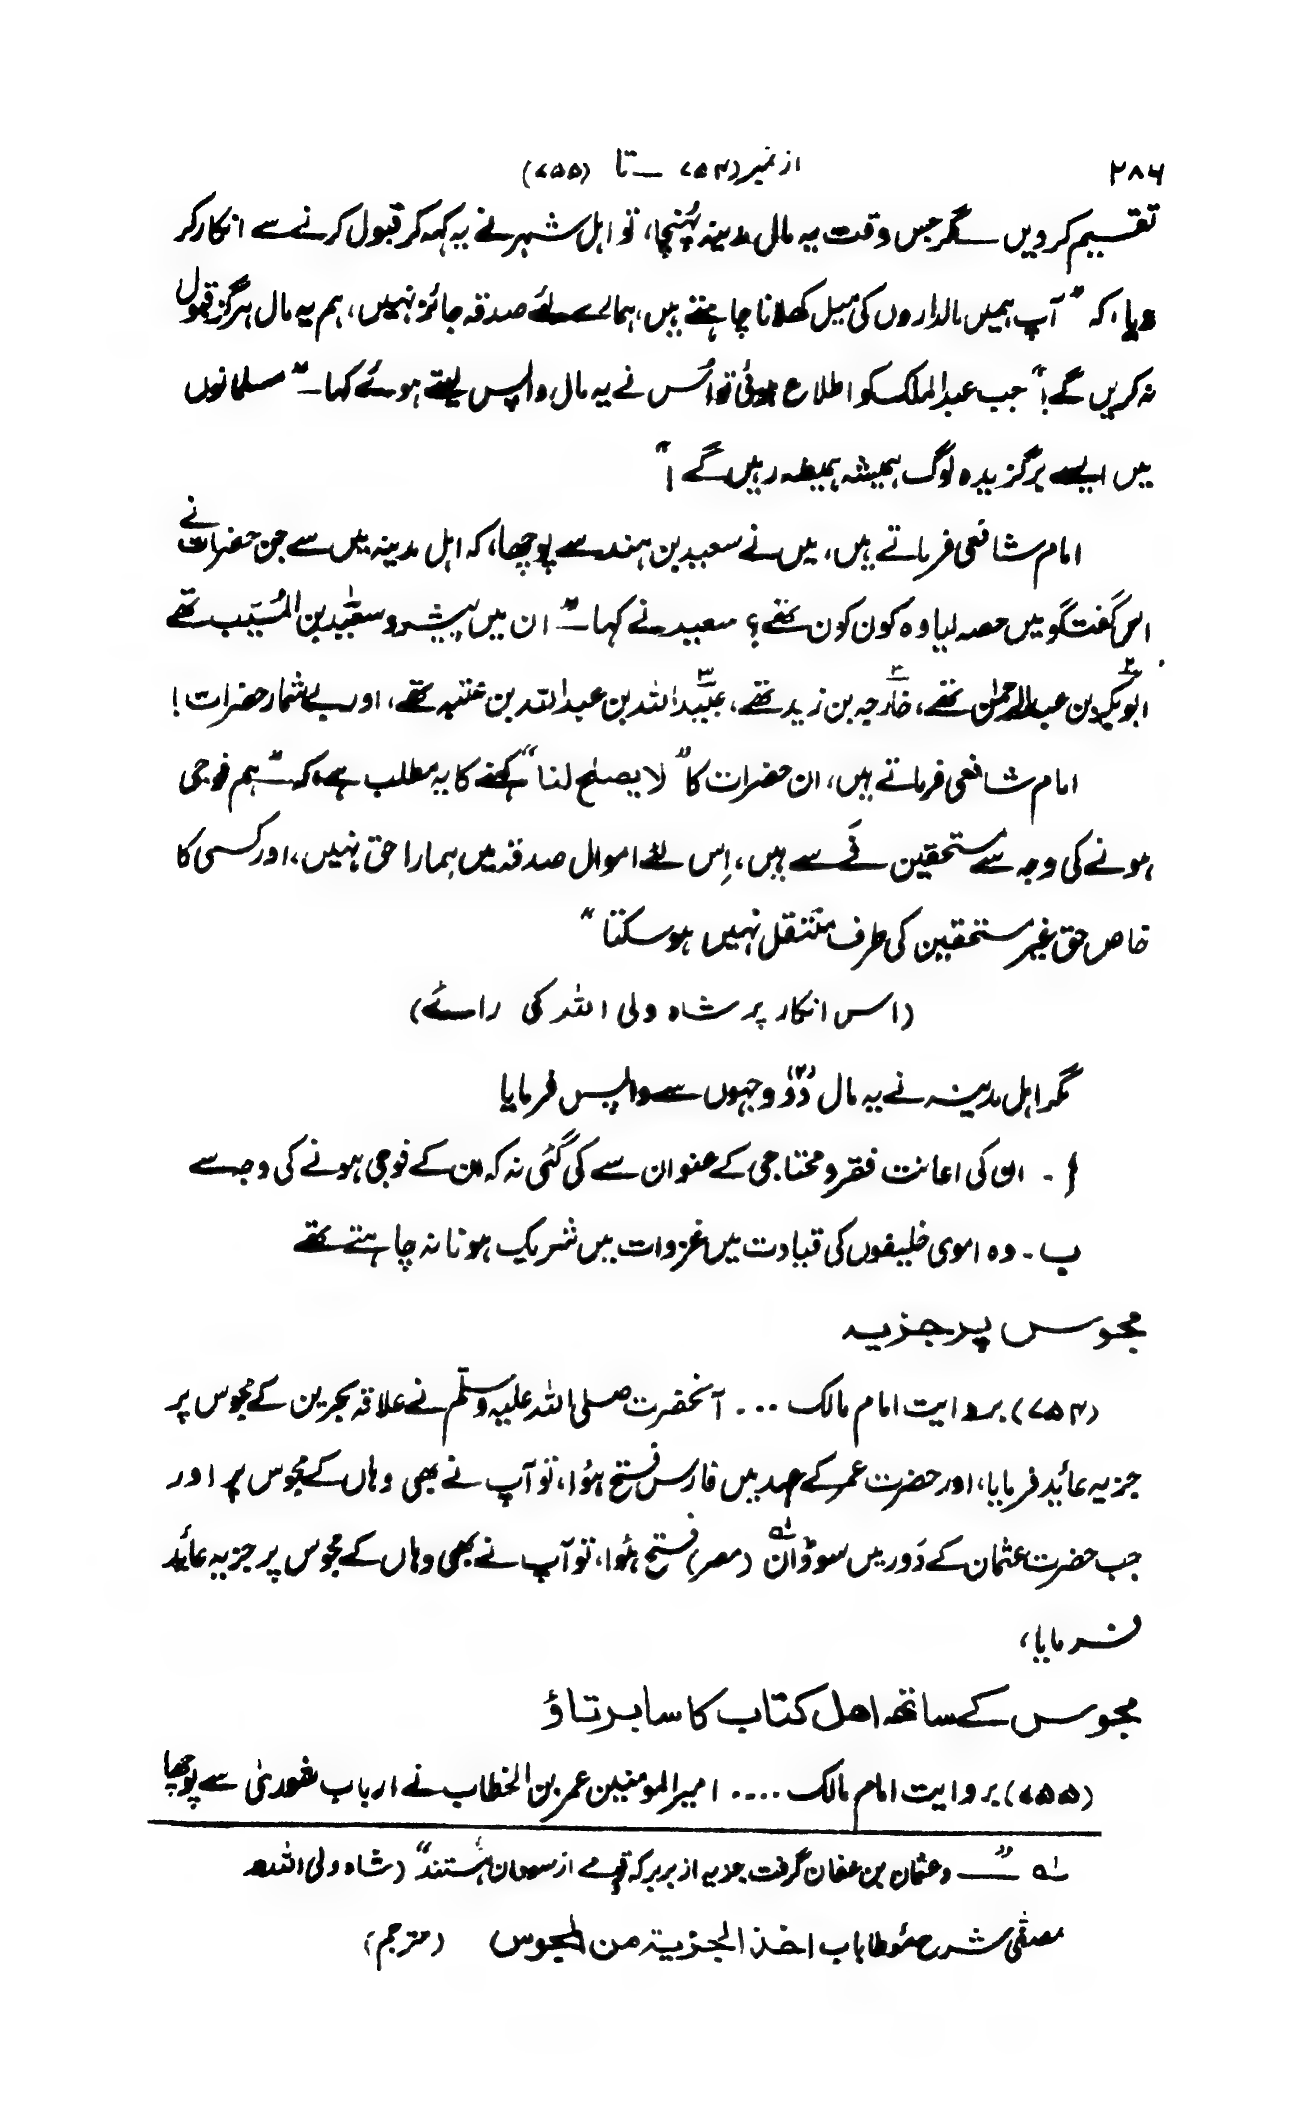 ۲۸۶
از نمبر (۷۵۴ — تا (۷۵۵)
تقسیم کر دیں — مگر جس وقت یہ مالی مدینہ پُہنچا، تو اہل شہر نے یہ کہہ کر قبول کرنے سے انکار کر
دیا، کہ "آپ ہمیں مالداروں کی میل کھلانا چاہتے ہیں، ہمارے لئے صدقہ جائز نہیں، ہم یہ مال ہرگز قبول
نہ کریں گے!" جب عبد الملک کو اطلاع ہوئی تو اُس نے یہ مال واپس لیتے ہوئے کہا — "مسلمانوں
میں ایسے برگزیدہ لوگ ہمیشہ ہمیشہ رہیں گے!"
امام شافعی فرماتے ہیں، میں نے سعید بن ہند سے پوچھا، کہ اہل مدینہ میں سے جن حضرات نے
اس گفتگو میں حصہ لیا وہ کون کون تھے؟ سعید نے کہا — "ان میں پیشرو سعیدؒ بن المُسَیّب تھے
ابو بکر بن عبدالرحمٰن تھے، خارجہ بن زید تھے، عبید اللہ بن عبد اللہ بن عتبہ تھے، اور بے شمار حضرات!
امام شافعی فرماتے ہیں، ان حضرات کا "لا یصلح لنا" کہنے کا یہ مطلب ہے، کہ — "ہم فوجی
ہونے کی وجہ سے مستحقین فَے سے ہیں، اِس لئے اموال صدقہ میں ہمارا حق نہیں، اور کسی کا
خاص حق غیر مستحقین کی طرف منتقل نہیں ہو سکتا"
(اس انکار پر شاہ ولی اللہ کی رائے)
مگر اہل مدینہ نے یہ مال دو (۲) وجہوں سے واپس فرمایا
أ - ان کی اعانت فقر و محتاجی کے عنوان سے کی گئی نہ کہ ان کے فوجی ہونے کی وجہ سے
ب - وہ اموی خلیفوں کی قیادت میں غزوات میں شریک ہونا نہ چاہتے تھے
مجوس پر جزیہ
(۷۵۴) بروایت امام مالک ... آنحضرت صلی اللہ علیہ وسلّم نے علاقہ بحرین کے مجوس پر
جزیہ عائد فرمایا، اور حضرت عمر کے عہد میں فارس فتح ہُوا، تو آپ نے بھی وہاں کے مجوس پر اور
جب حضرت عثمان کے دَور میں سوڈان ؎۱ (مصر) فتح ہُوا، تو آپ نے بھی وہاں کے مجوس پر جزیہ عائد
فرمایا،
مجوس کے ساتھ اہل کتاب کا سا برتاؤ
(۷۵۵) بروایت امام مالک .... امیر المومنین عمر بن الخطاب نے ارباب شوریٰ سے پوچھا
؎۱ — "وعثمان بن عفان گرفت جزیہ از بربر کہ قومے از سودان ہستند" (شاہ ولی اللہ
مصفّی شرح مؤطا باب اخذ الجزیۃ من المجوس (مترجم)